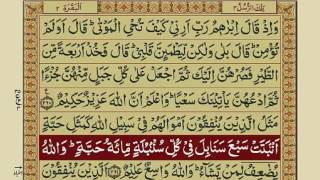 تِلْكَ الرُّسُلُ ٣ الْبَقَرَة ٢
وَاِذْ قَالَ اِبْرٰهٖمُ رَبِّ اَرِنِیْ كَیْفَ تُحْیِ الْمَوْتٰى ؕ قَالَ اَوَلَمْ
تُؤْمِنْ ؕ قَالَ بَلٰى وَلٰكِنْ لِّیَطْمَىِٕنَّ قَلْبِیْ ؕ قَالَ فَخُذْ اَرْبَعَةً مِّنَ
الطَّیْرِ فَصُرْهُنَّ اِلَیْكَ ثُمَّ اجْعَلْ عَلٰى كُلِّ جَبَلٍ مِّنْهُنَّ جُزْءًا
ثُمَّ ادْعُهُنَّ یَاْتِیْنَكَ سَعْیًا ؕ وَاعْلَمْ اَنَّ اللّٰهَ عَزِیْزٌ حَكِیْمٌ
مَثَلُ الَّذِیْنَ یُنْفِقُوْنَ اَمْوَالَهُمْ فِیْ سَبِیْلِ اللّٰهِ كَمَثَلِ حَبَّةٍ
اَنْۢبَتَتْ سَبْعَ سَنَابِلَ فِیْ كُلِّ سُنْۢبُلَةٍ مِّائَةُ حَبَّةٍ ؕ وَاللّٰهُ
یُضٰعِفُ لِمَنْ یَّشَآءُ ؕ وَاللّٰهُ وَاسِعٌ عَلِیْمٌ ۝ اَلَّذِیْنَ یُنْفِقُوْنَ